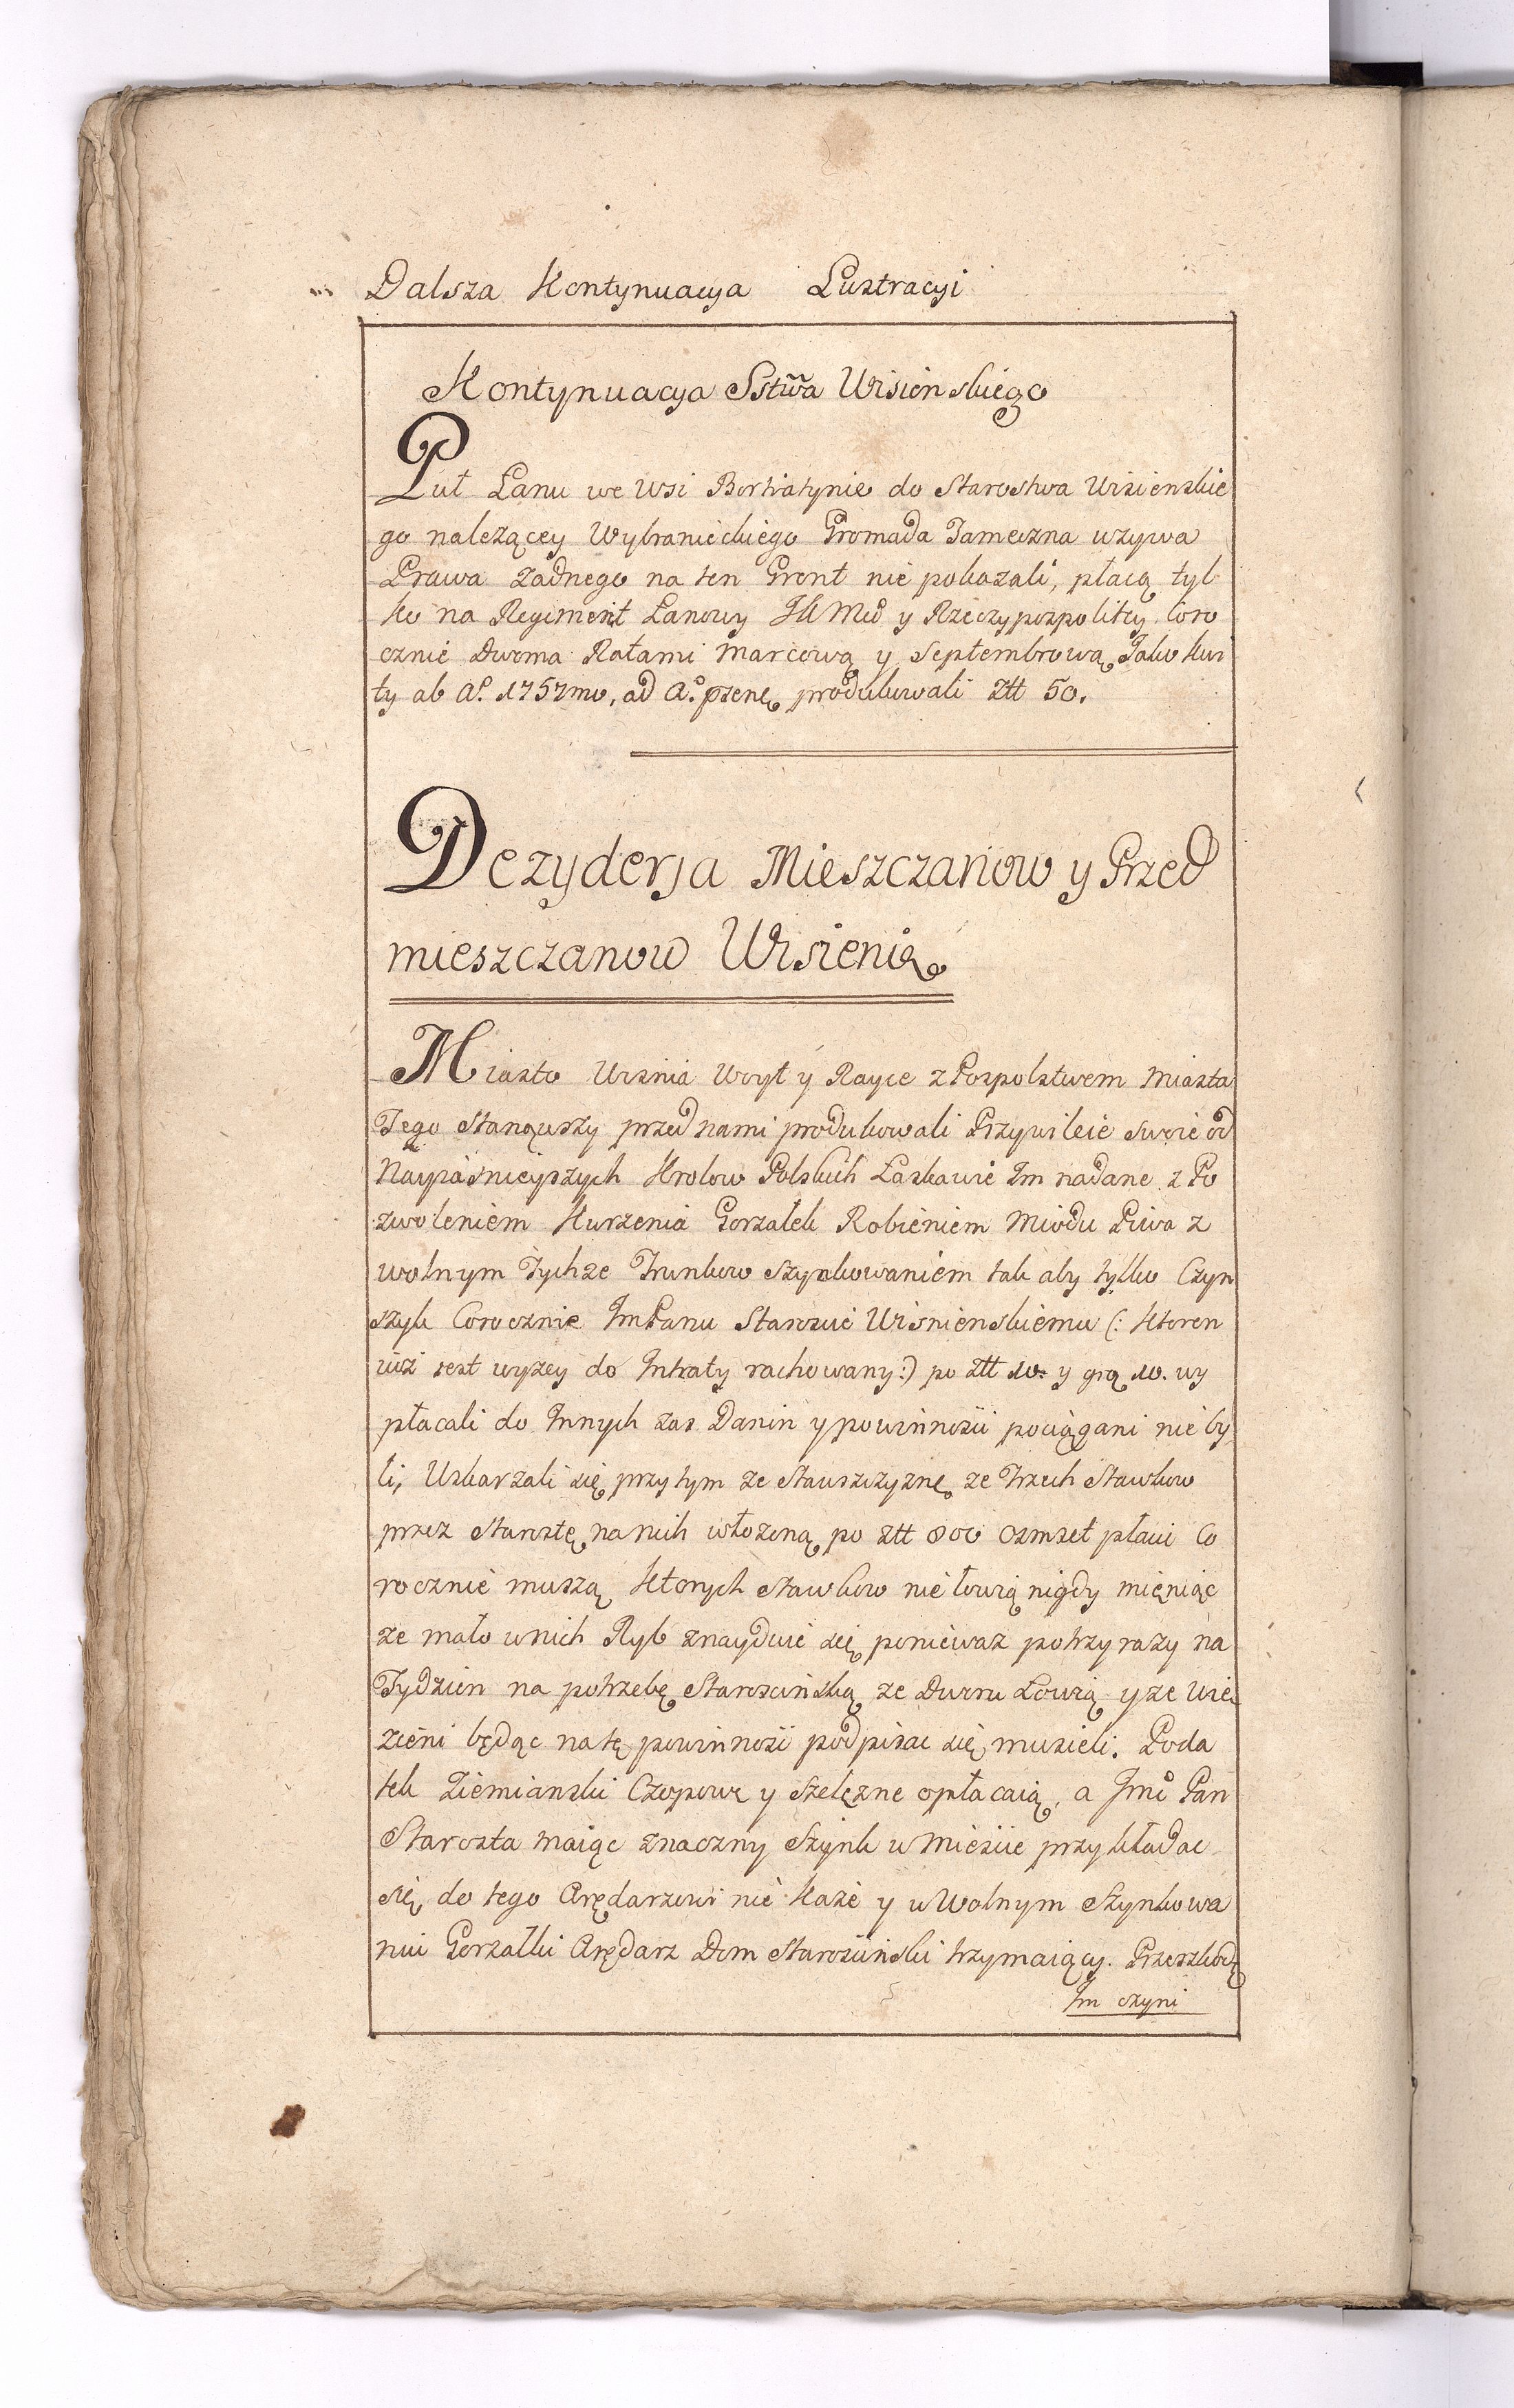 Dalsza Kontynuacya Lustracyi
Kontynuacya Sstwa Wisienskiego
Puł Łanu we Wsi Bortiatynie do Starostwa Wisienskie
go należącey Wybranieckiego Gromada Tameczna uzywa
Prawa żadnego na ten Gront nie pokazali, płacą tyl
ko na Regiment Łanowy JKMci y Rzeczypospolitey Coro
cznie Dwoma Ratami Marcową y Septembrową Jako kwi
ty ab Aº 1757mo, ad Aº psenę produkowali Złł 50.
Dezyderja Mieszczanow y Przed
mieszczanow Wisienią
Miasto Wisnia Woyt y Rayce z Pospolstwem Miasta
Tego Stanąwszy przed nami produkowali Przywileie swoie od
Nayiasnieyszych Krolow Polskich Łaskawie Im nadane z Po
zwoleniem Kurzenia Gorzałek Robieniem Miodu Piwa z
wolnym Tychże Trunkow szynkowaniem tak aby tylko Czyn
szyk Corocznie ImPanu Starosicie Wisnienskiemu (: Ktoren
iuż iest wyzey do Intraty rachowany:) po złł 10. y grą 10. wy
płacali do Innych zas Danin y powinnosci pociągani nie by
li, Uskarzali się przytym ze Stawszczyznę ze Trzech Stawkow
przez Starostę na nich włożoną po złł 800 osmset płacic Co
rocznie muszą Ktorych Stawkow nie łowią nigdy mieniąc
ze mało w nich Ryb znayduie się poniewaz po trzy razy na
Tydzien na potrzebę Staroscinską ze Dworu Łowią y ze Wię
zieni będąc na tę powinnosc podpisac się musieli. Poda
tek Ziemianski Czopowe y Szelęzne opłacaią, a Jmc Pan
Starosta maiąc znaczny Szynk w Miescie przykładac
się do tego Arędarzowi nie każe y w Wolnym Szynkowa
niu Gorzałki Arędarz Dom Starosciński trzymaiący. Przeszkodę
Im czyni